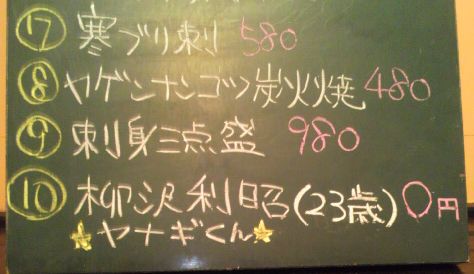 ⑦ 寒ブリ刺 580
⑧ ヤゲンナンコツ炭火焼 480
⑨ 刺身三点盛 980
⑩ 柳沢利昭(23歳)0円
★ヤナギくん★